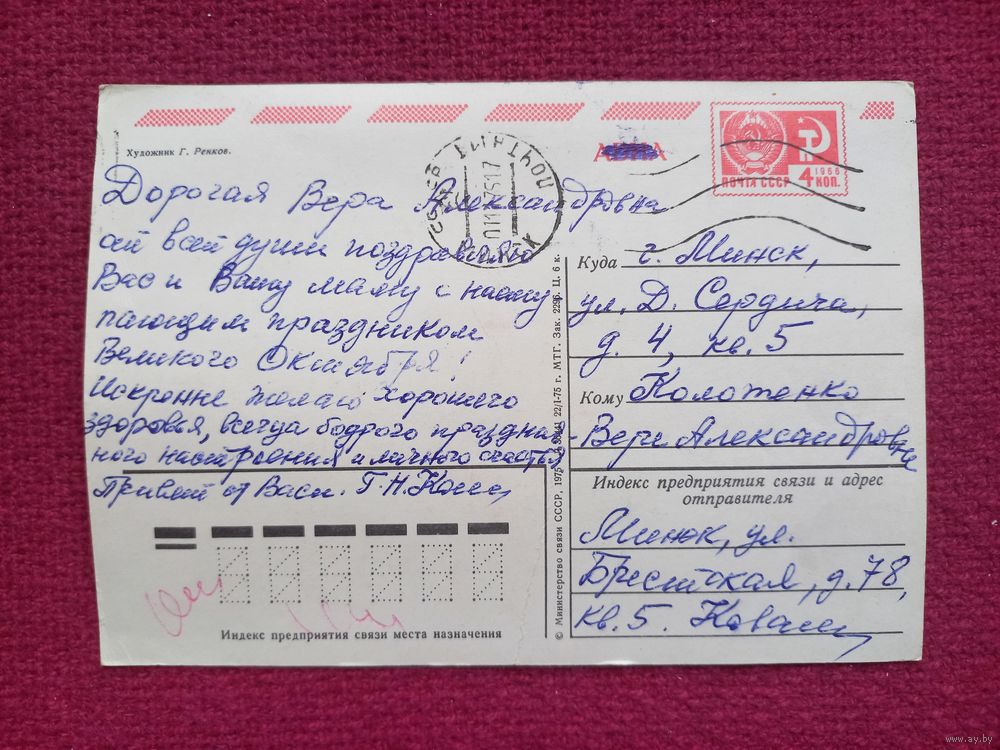 Художник Г. Ренков.
АВИА
ПОЧТА СССР
1966
4 КОП.
Дорогая Вера Александровна
от всей души поздравляю
Вас и Вашу маму с насту
пающим праздником
Великого Октября!
Искренне желаю хорошего
здоровья, всегда бодрого празднич-
ного настроения и личного счастья
Привет от Васи. Г.Н.
Куда г. Минск,
ул. Д. Сердича,
д. 4, кв. 5
Кому Колотенко
Вере Александровне
Индекс предприятия связи и адрес отправителя
Минск, ул.
Брестская, д. 78,
кв. 5.
Индекс предприятия связи места назначения
© Министерство связи СССР, 1975 22/I-75 г. МТГ. Зак. 2296. Ц. 6 к.
www.ay.by